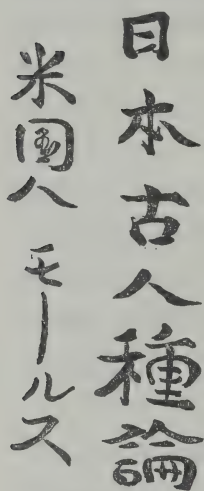 日本古人種論
米國人モールス